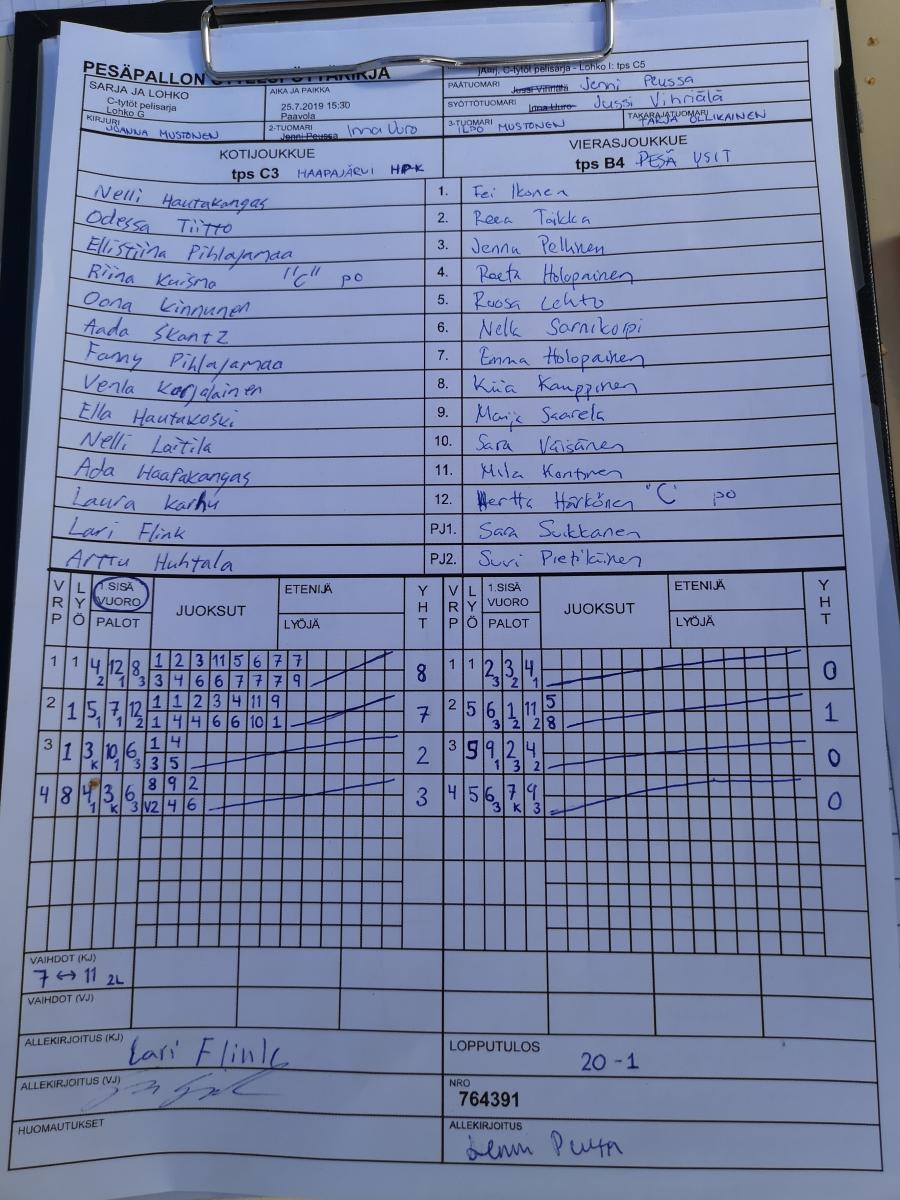 PESÄPALLON
SARJA JA LOHKO
C-tytöt pelisarja
Lohko G
AIKA JA PAIKKA
25.7.2019 15:30
Paavola
C-tytöt pelisarja - Lohko I: tps C5
PÄÄTUOMARI Jussi Vihriälä Jenni Peussa
SYÖTTÖTUOMARI Inna Uuro Jussi Vihriälä
KIRJURI
JOANNA MUSTONEN
2-TUOMARI
Jenni Peussa Inna Uuro
3-TUOMARI
ILPO MUSTONEN
TAKARAJATUOMARI
TARJA OLLIKAINEN
KOTIJOUKKUE
tps C3 HAAPAJÄRVI HPK
VIERASJOUKKUE
tps B4 PESÄ YSIT
Nelli Hautakangas 1. Fei Ikonen
Odessa Tiitto 2. Reea Toikka
Ellistiina Pihlajamaa 3. Jenna Pelkinen
Riina Kuisma "C" po 4. Reeta Holopainen
Oona Kinnunen 5. Ruosa Lehto
Aada Skantz 6. Nella Sarnikorpi
Fanny Pihlajamaa 7. Emma Holopainen
Venla Karjalainen 8. Kiia Kauppinen
Ella Hautakoski 9. Maija Saarela
Nelli Laitila 10. Sara Väisänen
Ada Haapakangas 11. Mila Kontinen
Laura Karhu 12. Hertta Härkönen "C" po
Lari Flink PJ1. Sara Suikkanen
Arttu Huhtala PJ2. Suvi Pietiläinen
VRP LYÖ 1.SISÄ VUORO PALOT JUOKSUT ETENIJÄ LYÖJÄ YHT VRP LYÖ 1.SISÄ VUORO PALOT JUOKSUT ETENIJÄ LYÖJÄ YHT
1 1 4 12 8 1 2 3 11 5 6 7 7 8 1 1 2 3 4 0
2 1 3 3 4 6 6 7 7 7 9 3 2 1
2 1 5 7 12 1 1 2 3 4 11 9 7 2 5 6 1 11 5 1
1 1 2 1 4 4 6 6 10 1 3 2 2 8
3 1 3 10 6 1 4 2 3 5 9 2 4 0
K 1 3 3 5 1 3 2
4 8 4 3 6 8 9 2 3 4 5 6 7 9 0
1 K 3 V2 4 6 3 K 3
VAIHDOT (KJ)
7 ↔ 11 2L
VAIHDOT (VJ)
ALLEKIRJOITUS (KJ) Lari Flink
LOPPUTULOS
20 - 1
ALLEKIRJOITUS (VJ)
NRO
764391
HUOMAUTUKSET
ALLEKIRJOITUS